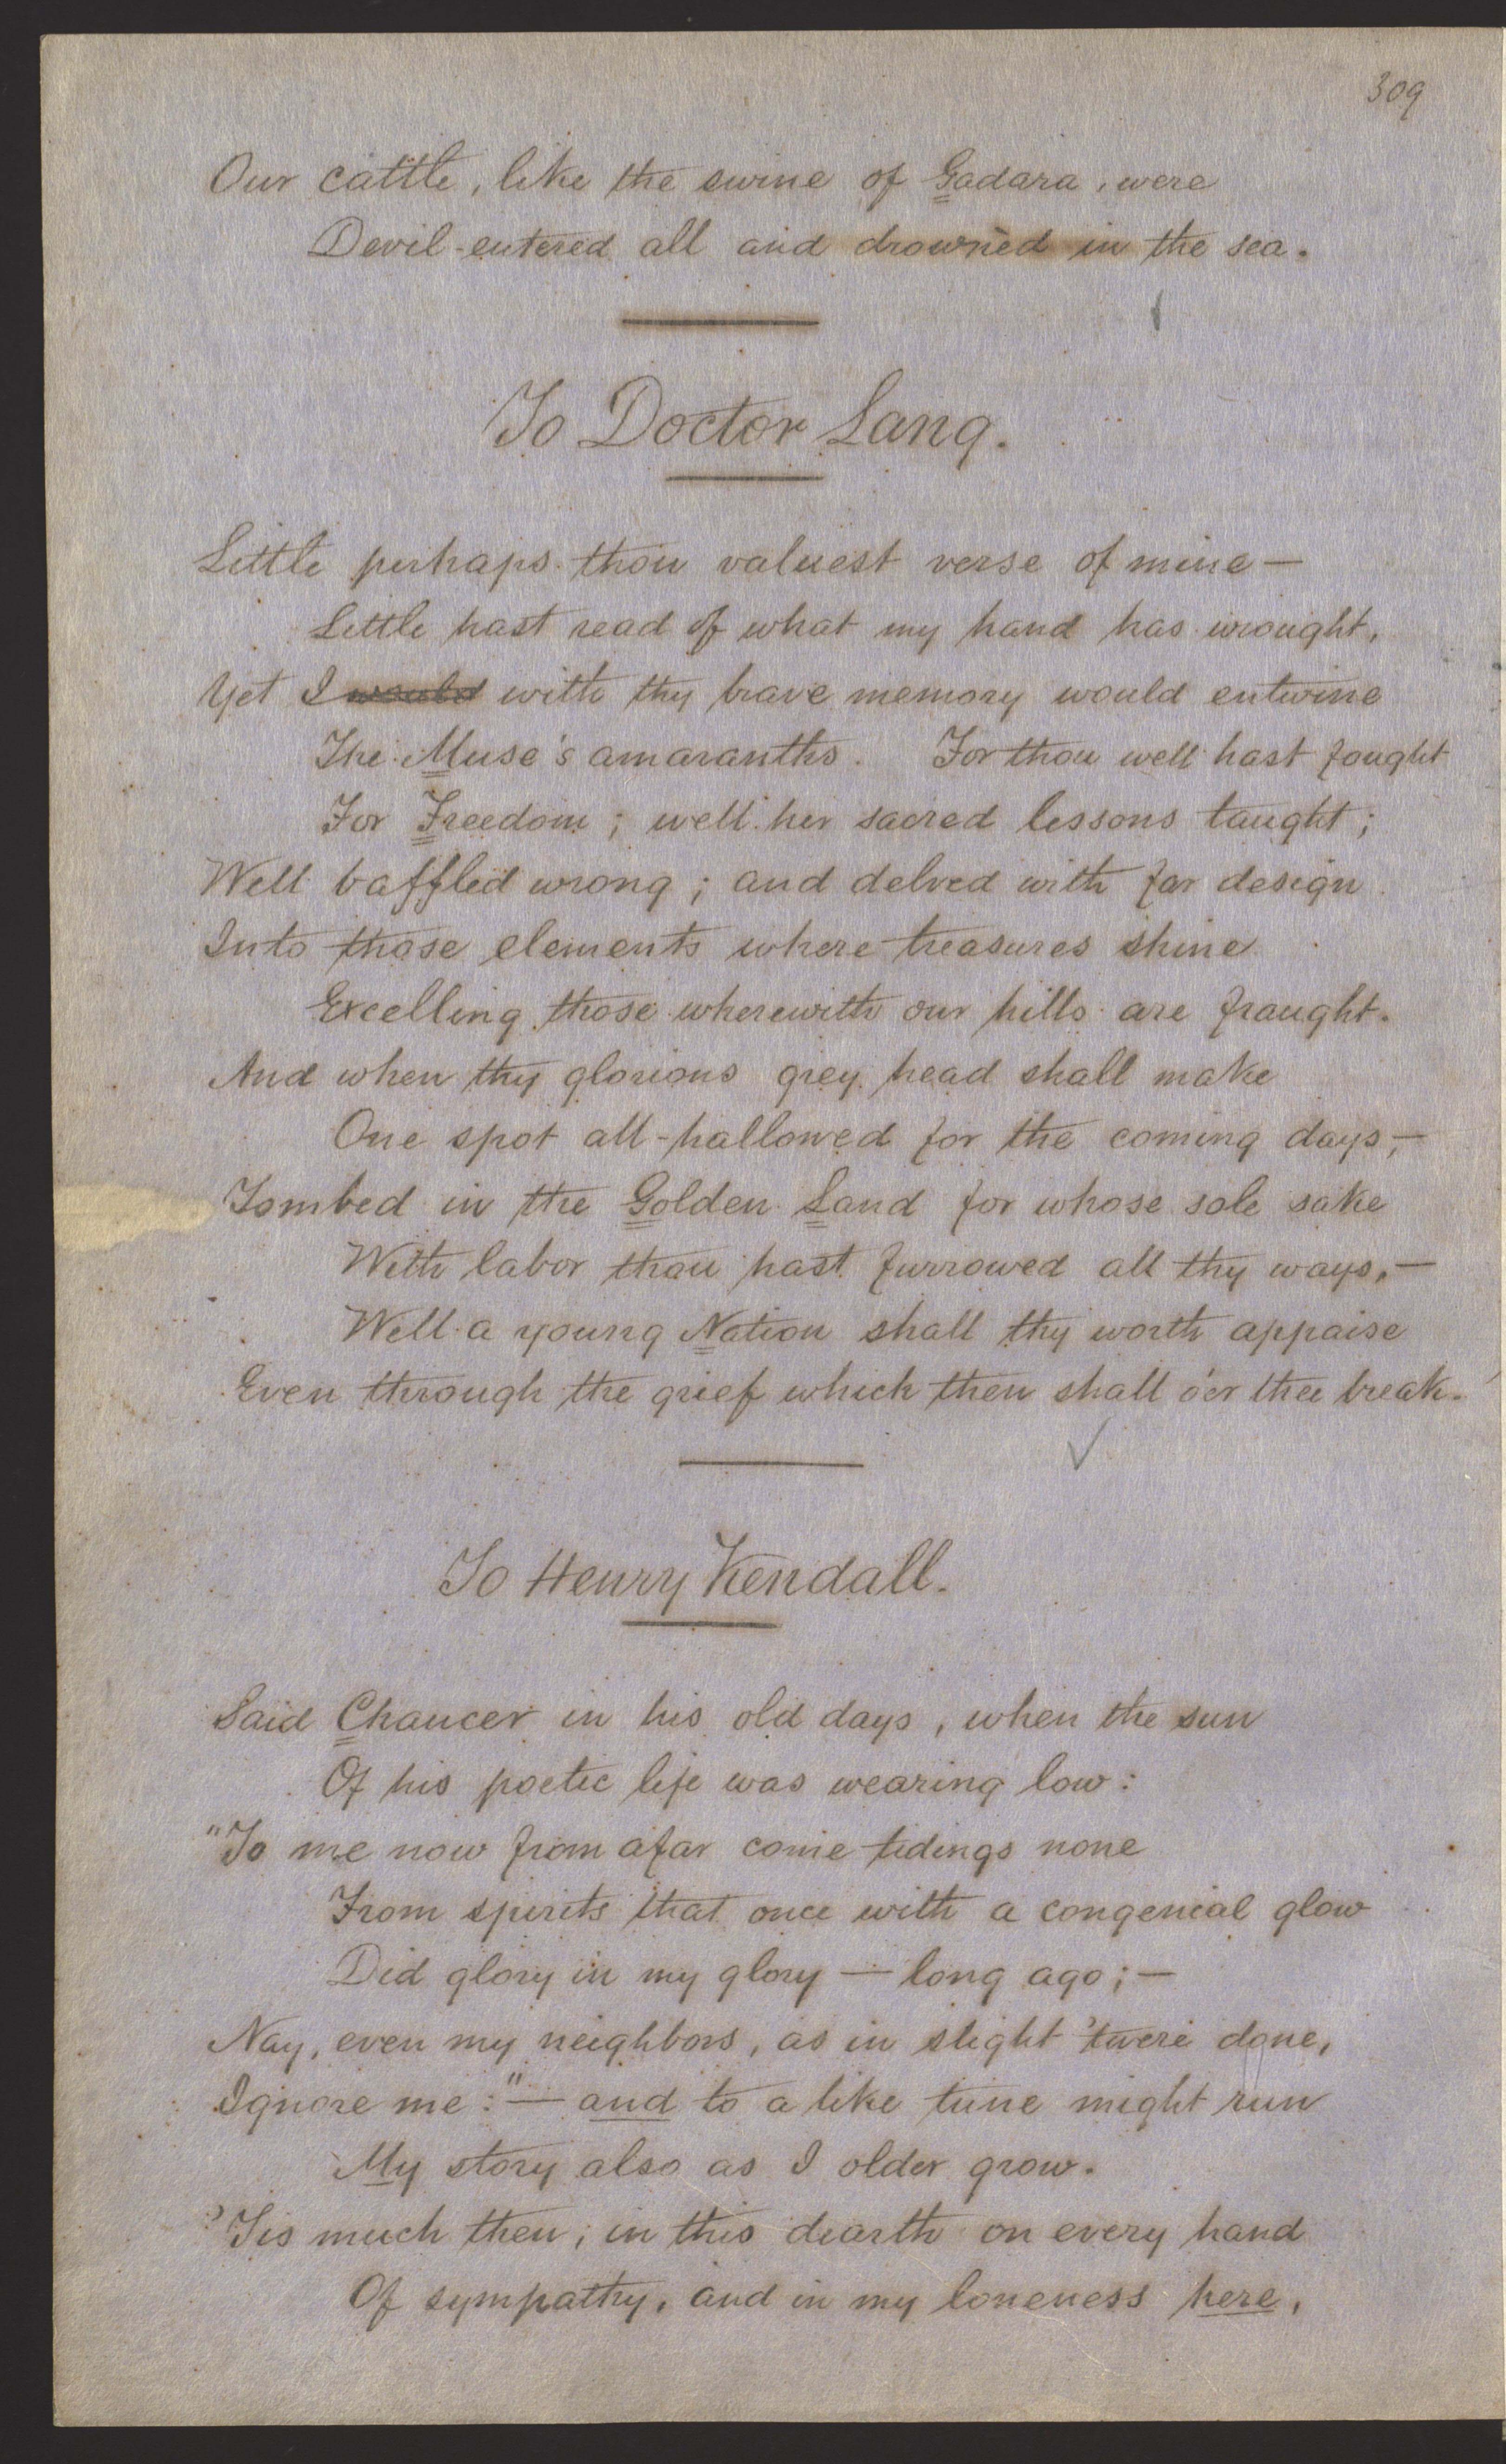 309
Our cattle, like the swine of Gadara, were
Devil-entered all and drowned in the sea.
To Doctor Lang.
Little perhaps thou valuest verse of mine —
Little hast read of what my hand has wrought,
Yet I would with thy brave memory would entwine
The Muse's amaranths. For thou well hast fought
For Freedom; well her sacred lessons taught;
Well baffled wrong; and delved with far design
Into those elements where treasures shine
Excelling those wherewith our hills are fraught.
And when thy glorious grey head shall make
One spot all-hallowed for the coming days,—
Tombed in the Golden Land for whose sole sake
With labor thou hast furrowed all thy ways,—
Well a young Nation shall thy worth appaise
Even through the grief which then shall o'er thee break.
To Henry Kendall.
Said Chaucer in his old days, when the sun
Of his poetic life was wearing low:
"To me now from afar come tidings none
From spirits that once with a congenial glow
Did glory in my glory — long ago; —
Nay, even my neighbors, as in slight 'twere done,
Ignore me:" — and to a like tune might run
My story also as I older grow.
'Tis much then, in this dearth on every hand
Of sympathy, and in my loneness here,